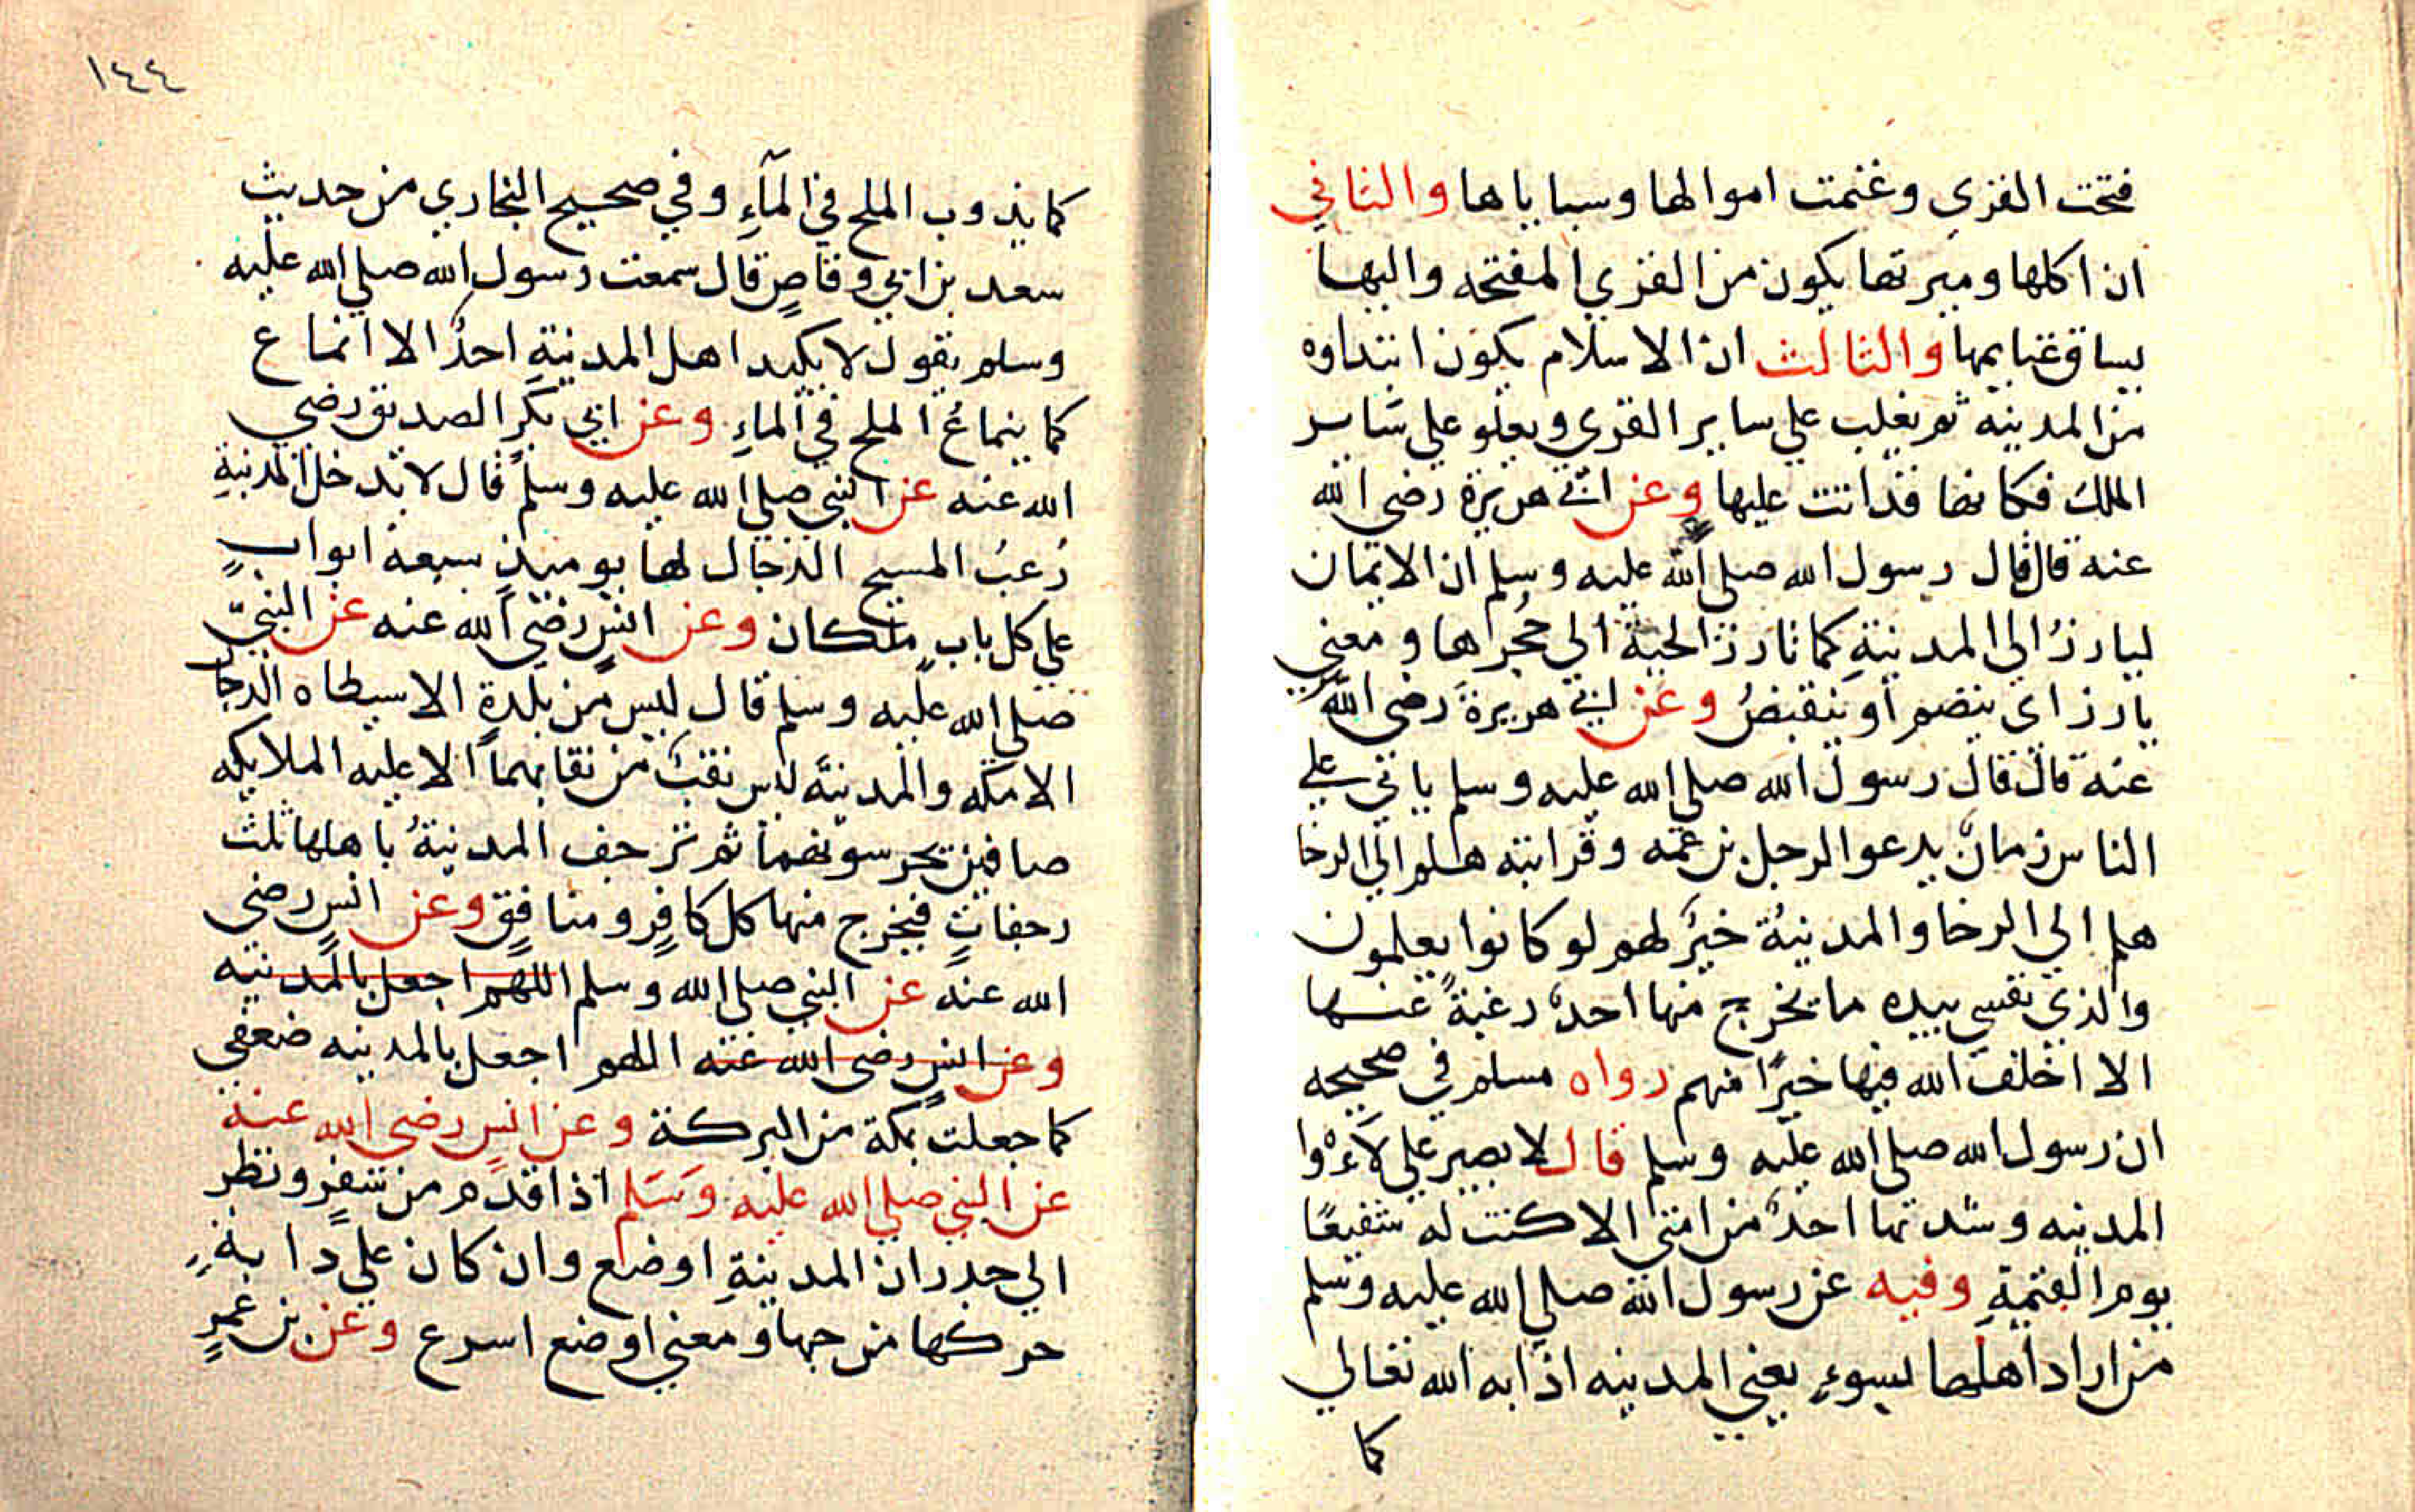 فتحت القري وغنمت اموالها وسباياها والثاني
ان اكلها وميرتها يكون من القري المفتحه واليها
يساق غنايمها والثالث ان الاسلام يكون ابتداوه
من المدينه ثم يغلب علي ساير القري ويعلو علي ساير
الملك فكانها قد اتت عليها وعن ابي هريرة رضي الله
عنه قال قال رسول الله صلي الله عليه وسلم ان الايمان
ليارزُ الي المدينةِ كما تارز الحية الي حُجراها ومعني
يارز اي ينضم او ينقبضُ وعن ابي هريرةَ رضي الله
عنه قال قال رسول الله صلي الله عليه وسلم ياتي علي
الناس زمانٌ يدعو الرجل بن عمه وقرابته هلم الي الرخا
هلم الي الرخا والمدينةُ خيرٌ لهم لو كانوا يعلمون
والذي نفسي بيده ما يخرج منها احدٌ رغبةً عنها
الا اخلف الله فيها خيرًا منهم رواه مسلم في صحيحه
ان رسول الله صلي الله عليه وسلم قال لا يصبر علي لآءْوا
المدينه وشدتها احدٌ من امتي الا كنت له شفيعًا
يوم القيمةِ وفيه عن رسول الله صلي الله عليه وسلم
من اراد اهلها بسوءٍ يعني المدينه اذابه الله تعالي
كما
١٤٤
كما يذوب الملح في المآءِ وفي صحيح البخاري من حديث
سعد بن ابي وقاصٍ قال سمعت رسول الله صلي الله عليه
وسلم يقول لا يكيد اهل المدينةِ احدٌ الا انماع
كما ينماعُ الملح في الماءِ وعن ابي بكرٍ الصديق رضي
الله عنه عن النبي صلي الله عليه وسلم قال لا يدخل المدينةِ
رُعبُ المسيح الدجال لها يوميذٍ سبعة ابوابٍ
علي كل بابٍ ملكان وعن انسٍ رضي الله عنه عن النبيّ
صلي الله عليه وسلم قال ليس من بلدةٍ الا سيطاه الدجال
الا مكه والمدينةَ ليس نقبٌ من نقابهما الا عليه الملايكه
صافين تحرسونهما ثم ترجف المدينةُ باهلها ثلث
رجفاتٍ فيخرج منها كل كافرٍ ومنافقٍ وعن انسٍ رضي
الله عنه عن النبي صلي الله وسلم اللهم اجعل بالمدينه
وعن انسٍ رضي الله عنه اللهم اجعل بالمدينه ضعفي
كما جعلت بمكة من البركة وعن انسٍ رضي الله عنه
عن النبي صلي الله عليه وَسَلم اذا قدم من سفرٍ ونظر
الي جدران المدينةِ اوضع وان كان علي دابةٍ
حركها من حبها ومعني اوضع اسرع وعن بن عمرٍ